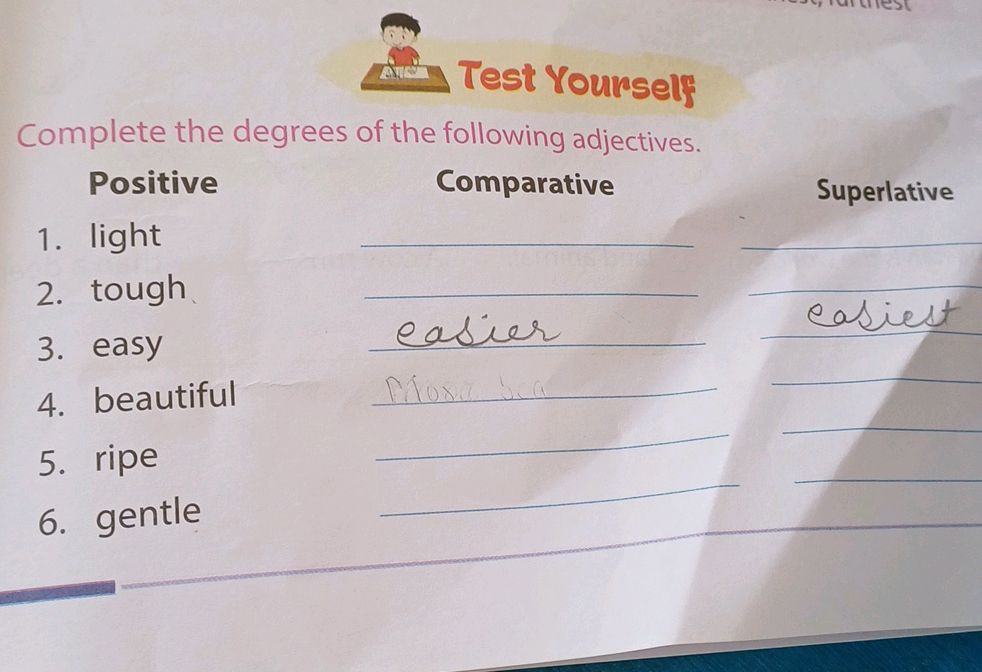 Test Yourself
Complete the degrees of the following adjectives.
Positive Comparative Superlative
1. light
2. tough
3. easy easier easiest
4. beautiful
5. ripe
6. gentle